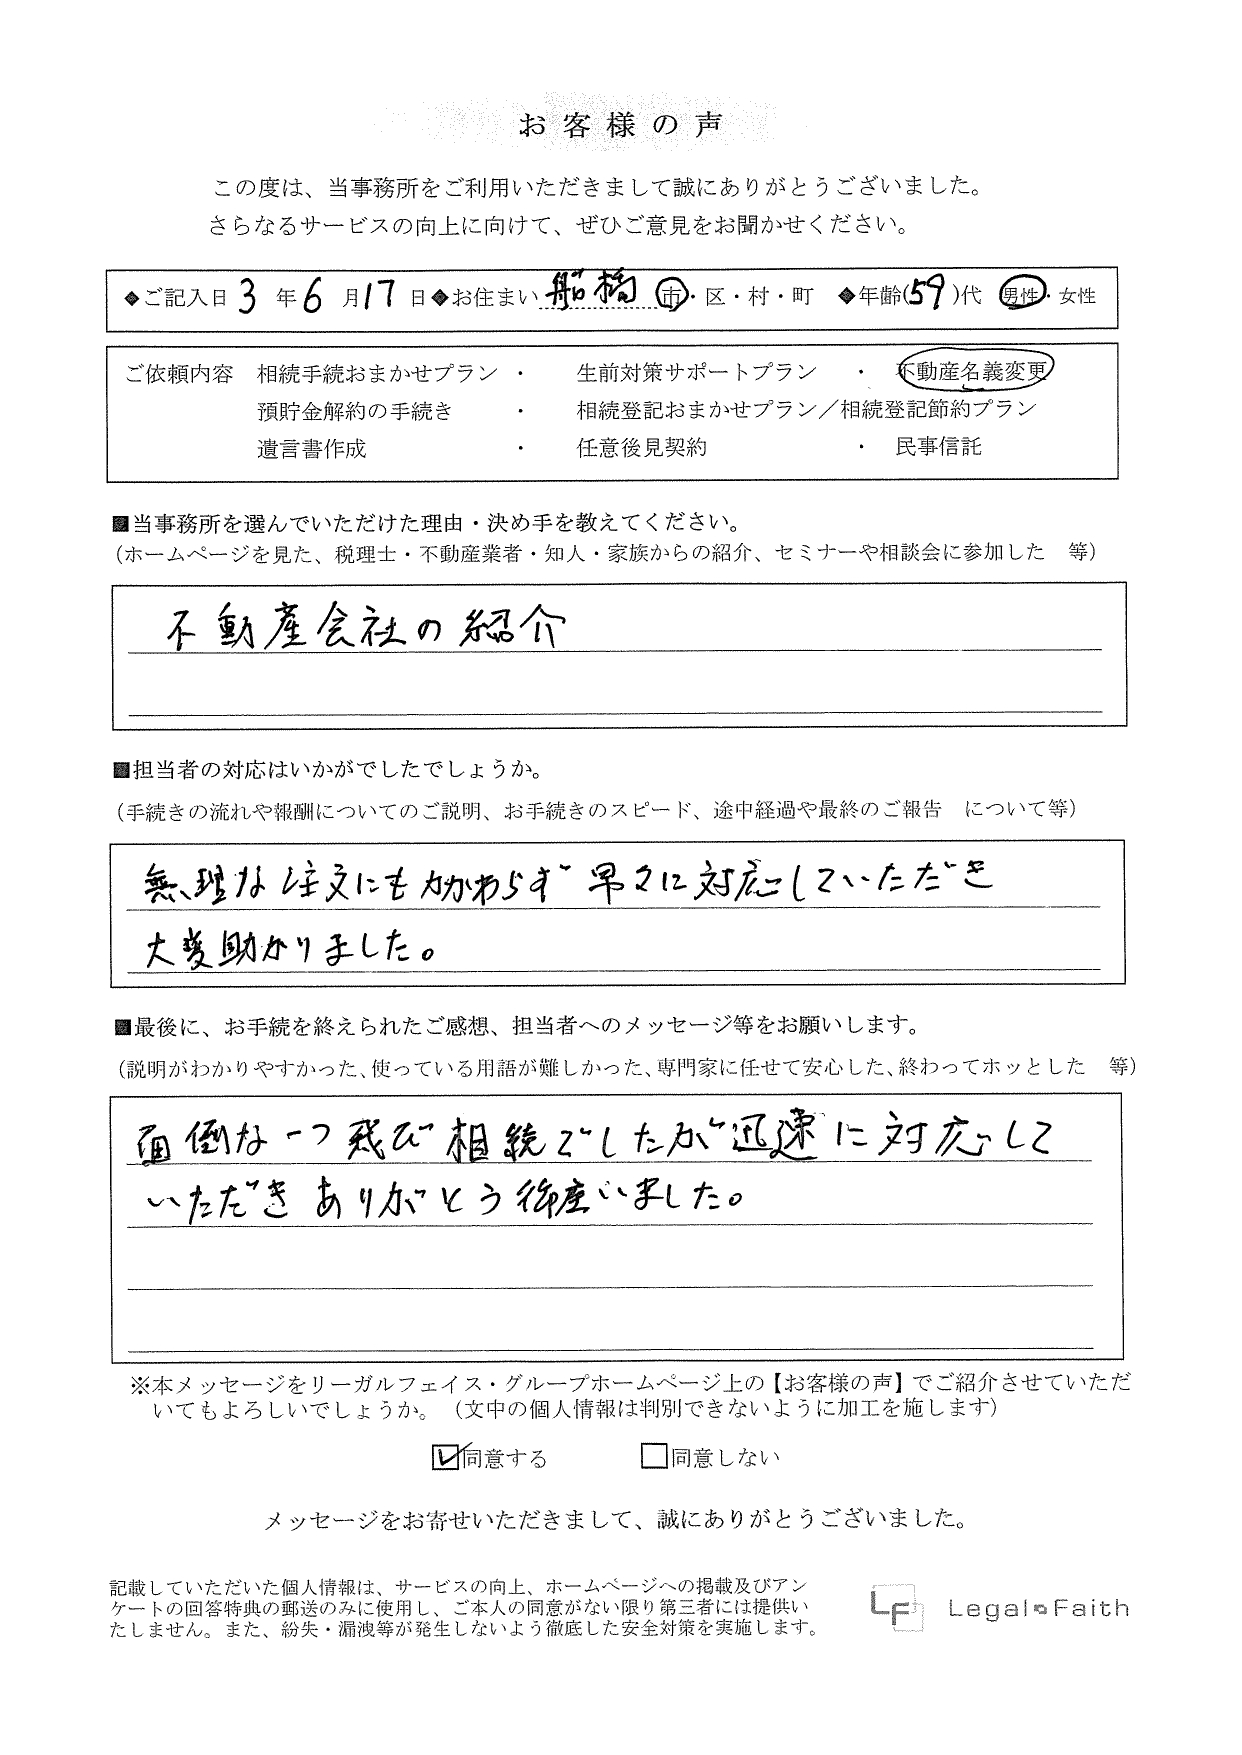 お客様の声
この度は、当事務所をご利用いただきまして誠にありがとうございました。
さらなるサービスの向上に向けて、ぜひご意見をお聞かせください。
◆ご記入日 3 年 6 月 17 日◆お住まい 船橋 市・区・村・町 ◆年齢(59)代 男性・女性
ご依頼内容 相続手続おまかせプラン ・ 生前対策サポートプラン ・ 不動産名義変更
預貯金解約の手続き ・ 相続登記おまかせプラン／相続登記節約プラン
遺言書作成 ・ 任意後見契約 ・ 民事信託
■当事務所を選んでいただけた理由・決め手を教えてください。
（ホームページを見た、税理士・不動産業者・知人・家族からの紹介、セミナーや相談会に参加した 等）
不動産会社の紹介
■担当者の対応はいかがでしたでしょうか。
（手続きの流れや報酬についてのご説明、お手続きのスピード、途中経過や最終のご報告 について等）
無理な注文にもかかわらず早々に対応していただき
大変助かりました。
■最後に、お手続を終えられたご感想、担当者へのメッセージ等をお願いします。
（説明がわかりやすかった、使っている用語が難しかった、専門家に任せて安心した、終わってホッとした 等）
面倒な一つ飛び相続でしたが迅速に対応して
いただきありがとう御座いました。
※本メッセージをリーガルフェイス・グループホームページ上の【お客様の声】でご紹介させていただ
いてもよろしいでしょうか。（文中の個人情報は判別できないように加工を施します）
☑同意する □同意しない
メッセージをお寄せいただきまして、誠にありがとうございました。
記載していただいた個人情報は、サービスの向上、ホームページへの掲載及びアン
ケートの回答特典の郵送のみに使用し、ご本人の同意がない限り第三者には提供い
たしません。また、紛失・漏洩等が発生しないよう徹底した安全対策を実施します。
LF Legal Faith